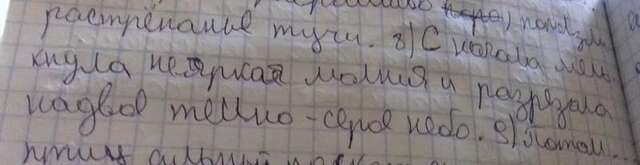 поползли
растрёпаные тучи. 8) С начала мель-
кнула неяркая молния и разрезала
надвое темно-серое небо. 9) Потом